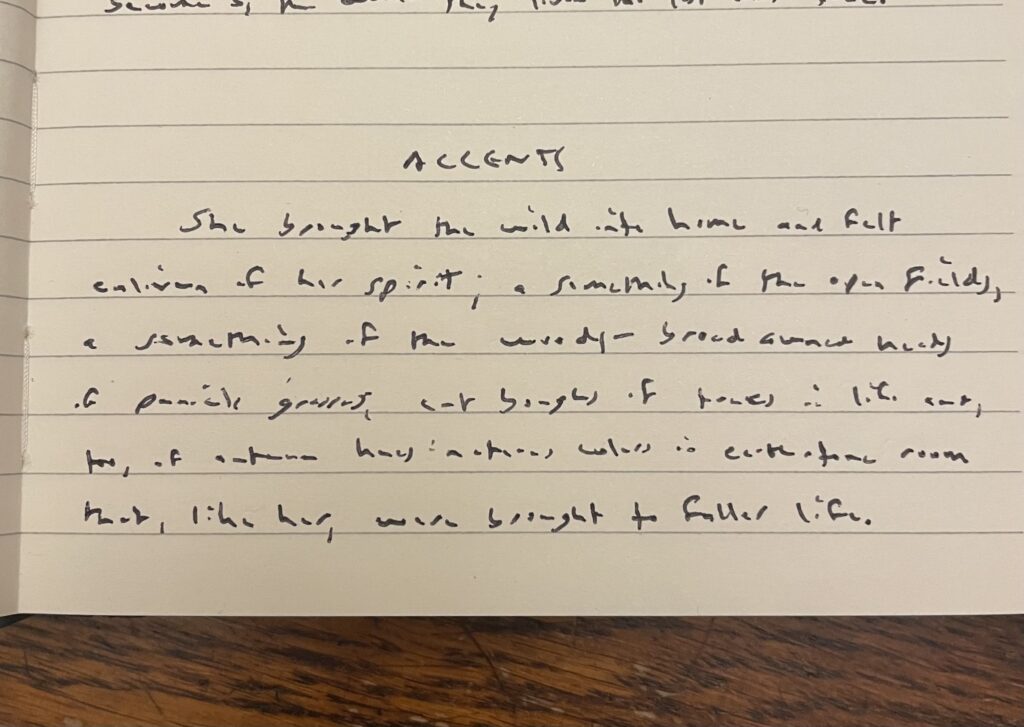 become s, the they
ACCENTS
She brought the wild into home and felt
enliven of her spirit; a something of the open fields,
a something of the woods – broad heads
of panicle grasses, cut boughs of trees in life and,
too, of autumn hues in colors in earth-tone room
that, like her, were brought to fuller life.